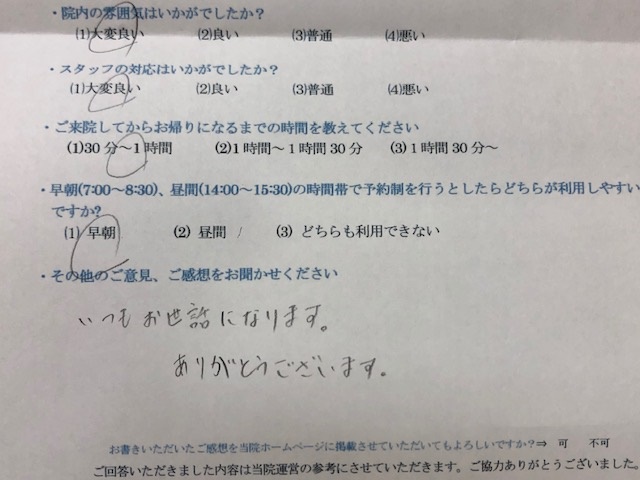 ・院内の雰囲気はいかがでしたか？
(1)大変良い (2)良い (3)普通 (4)悪い
・スタッフの対応はいかがでしたか？
(1)大変良い (2)良い (3)普通 (4)悪い
・ご来院してからお帰りになるまでの時間を教えてください
(1)30分～1時間 (2)1時間～1時間30分 (3)1時間30分～
・早朝(7:00～8:30)、昼間(14:00～15:30)の時間帯で予約制を行うとしたらどちらが利用しやすい
ですか?
(1) 早朝 (2) 昼間 / (3) どちらも利用できない
・その他のご意見、ご感想をお聞かせください
いつもお世話になります。
ありがとうございます。
お書きいただいたご感想を当院ホームページに掲載させていただいてもよろしいですか?⇒ 可 不可
ご回答いただきました内容は当院運営の参考にさせていただきます。ご協力ありがとうございました。